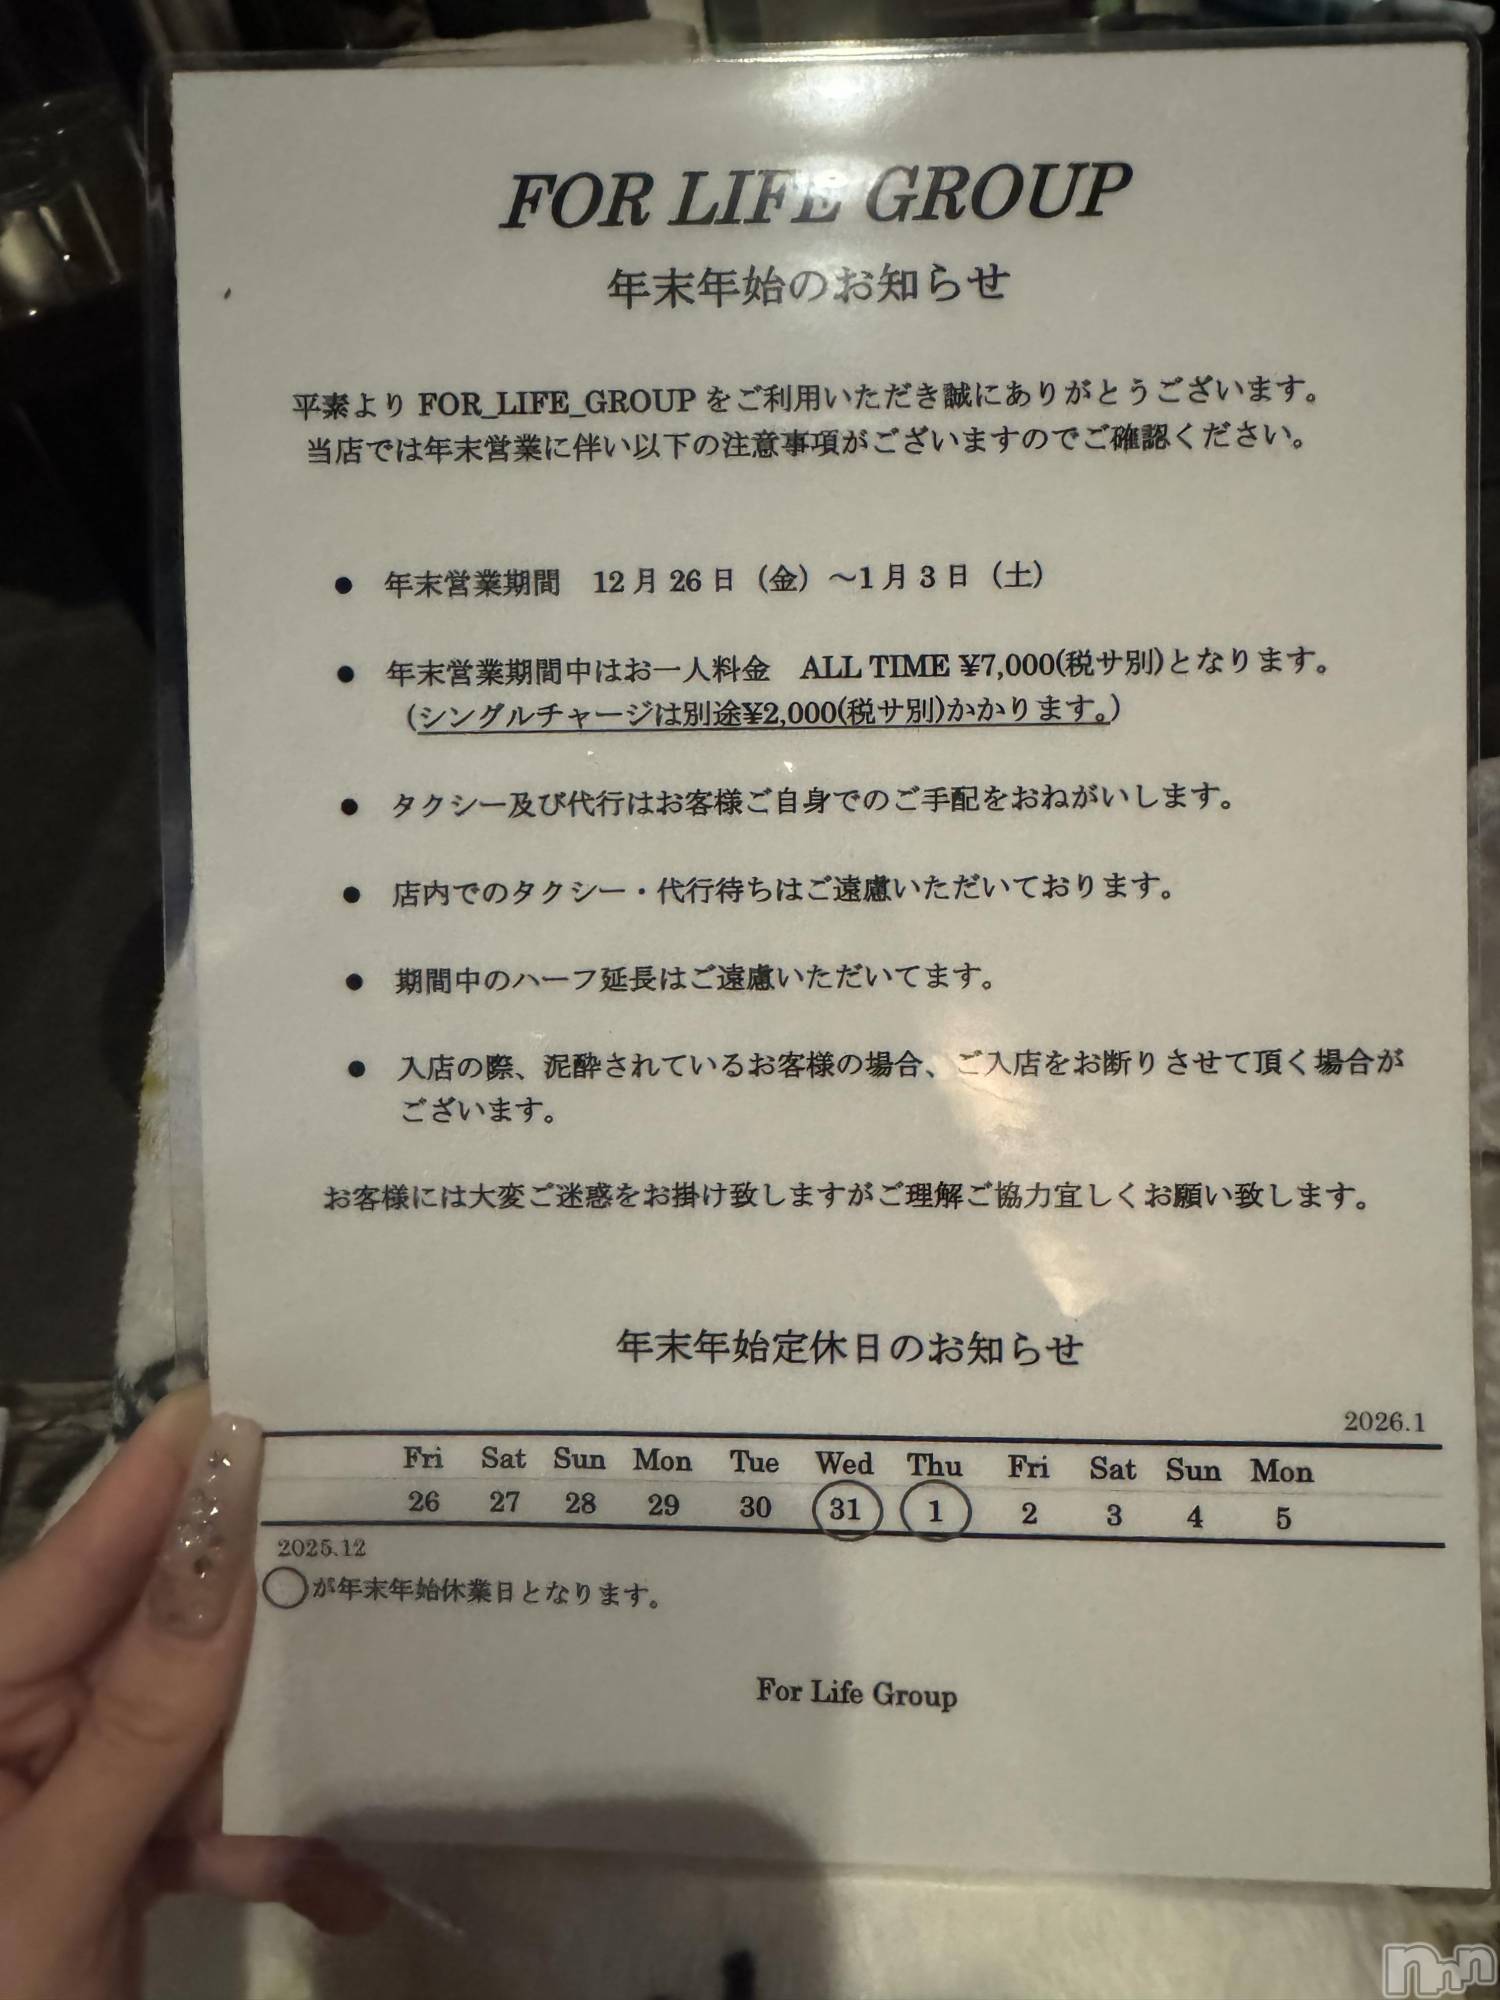 FOR LIFE GROUP
年末年始のお知らせ
平素より FOR_LIFE_GROUP をご利用いただき誠にありがとうございます。
当店では年末営業に伴い以下の注意事項がございますのでご確認ください。
● 年末営業期間 12 月 26 日（金）～1 月 3 日（土）
● 年末営業期間中はお一人料金 ALL TIME ¥7,000(税サ別)となります。
(シングルチャージは別途¥2,000(税サ別)かかります。)
● タクシー及び代行はお客様ご自身でのご手配をおねがいします。
● 店内でのタクシー・代行待ちはご遠慮いただいております。
● 期間中のハーフ延長はご遠慮いただいてます。
● 入店の際、泥酔されているお客様の場合、ご入店をお断りさせて頂く場合が
ございます。
お客様には大変ご迷惑をお掛け致しますがご理解ご協力宜しくお願い致します。
年末年始定休日のお知らせ
2026.1
Fri Sat Sun Mon Tue Wed Thu Fri Sat Sun Mon
26 27 28 29 30 31 1 2 3 4 5
2025.12
◯が年末年始休業日となります。
For Life Group
nnn